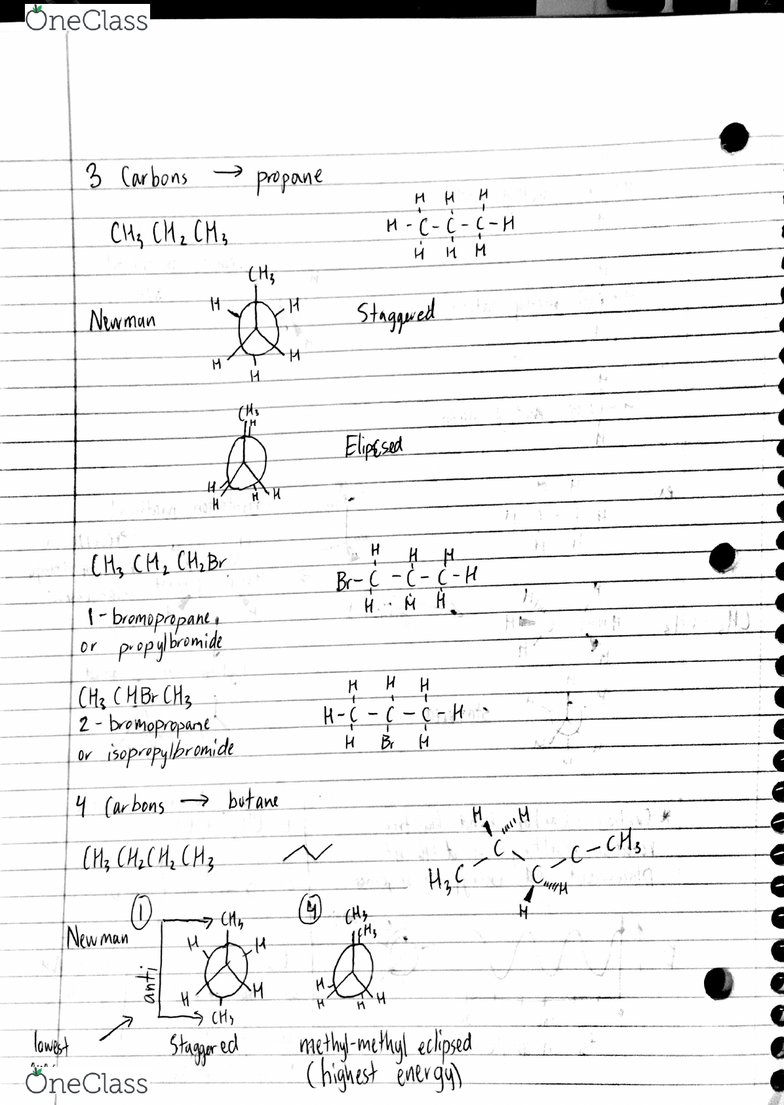 OneClass
3 Carbons → propane
CH₃ CH₂ CH₃
H H H
H - C - C - C - H
H H H
Newman
CH₃
H H
H H
H
Staggered
CH₃
H
H H H
H
Elipsed
CH₃ CH₂ CH₂Br
H H H
Br - C - C - C - H
H H H
1-bromopropane
or propylbromide
CH₃ CHBr CH₃
H H H
H - C - C - C - H
H Br H
2-bromopropane
or isopropylbromide
4 Carbons → butane
CH₃ CH₂ CH₂ CH₃
H H
C C - CH₃
H₃C C H
H
Newman
① CH₃
H H
H H
CH₃
anti
④ CH₃
CH₃
H H
H H
lowest
Staggered
methyl-methyl eclipsed
(highest energy)
OneClass